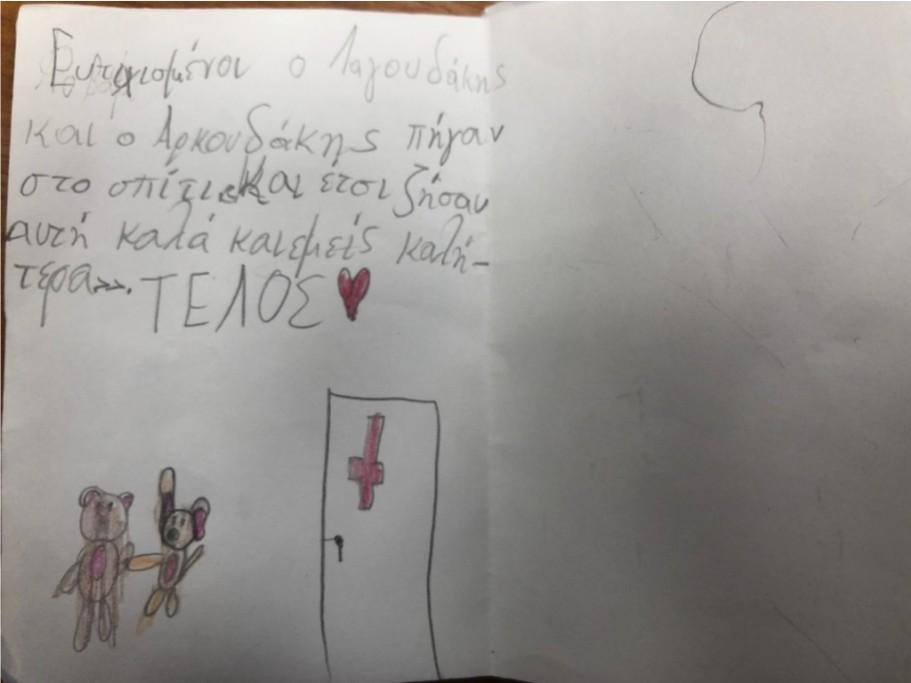 Ευτυχισμένοι ο Λαγουδάκης
και ο Αρκουδάκης πήγαν
στο σπίτι και έτσι ζήσαν
αυτή καλά και εμείς καλή-
τερα». ΤΕΛΟΣ